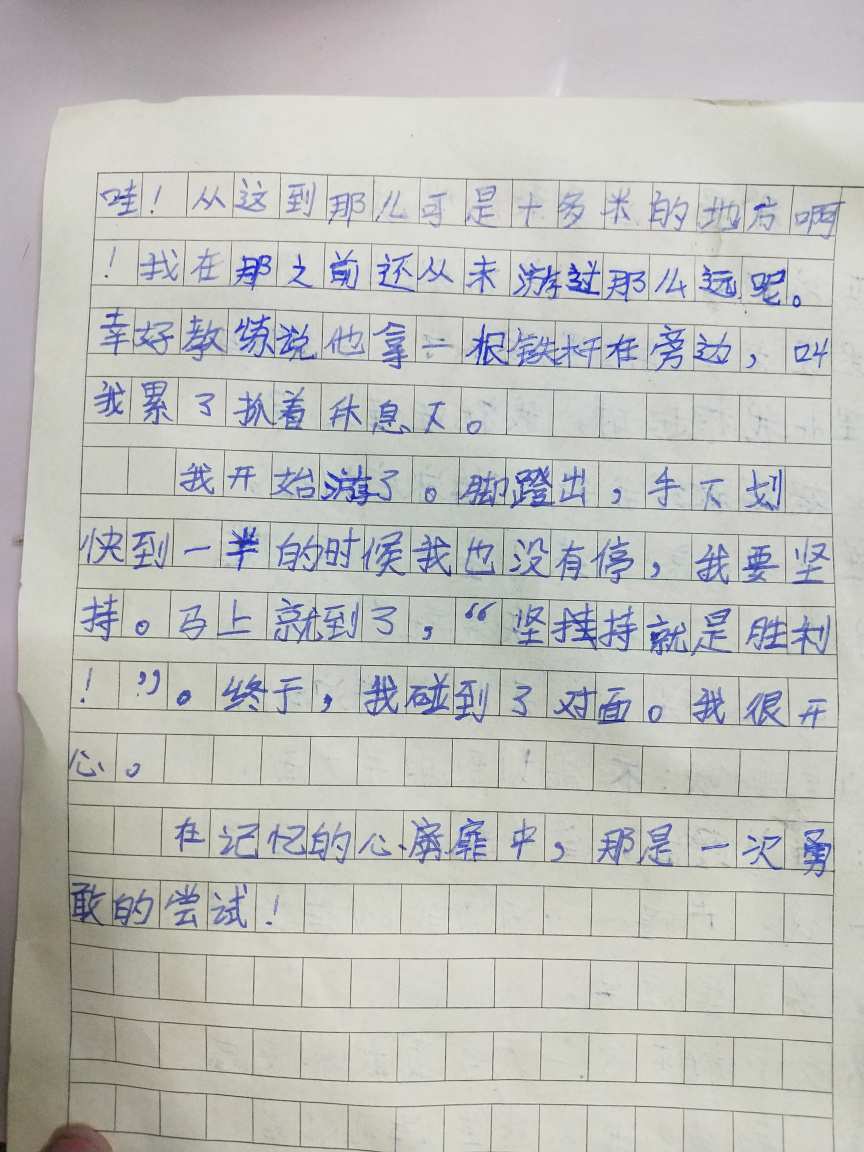 哇！从这到那儿可是十多米的地方啊
！我在那之前还从未游过那么远呢。
幸好教练说他拿一根铁杆在旁边，叫
我累了抓着休息下。
我开始游了。脚蹬出，手下划
快到一半的时候我也没有停，我要坚
持。马上就到了，“坚持就是胜利
！”。终于，我碰到了对面。我很开
心。
在记忆的心扉中，那是一次勇
敢的尝试！